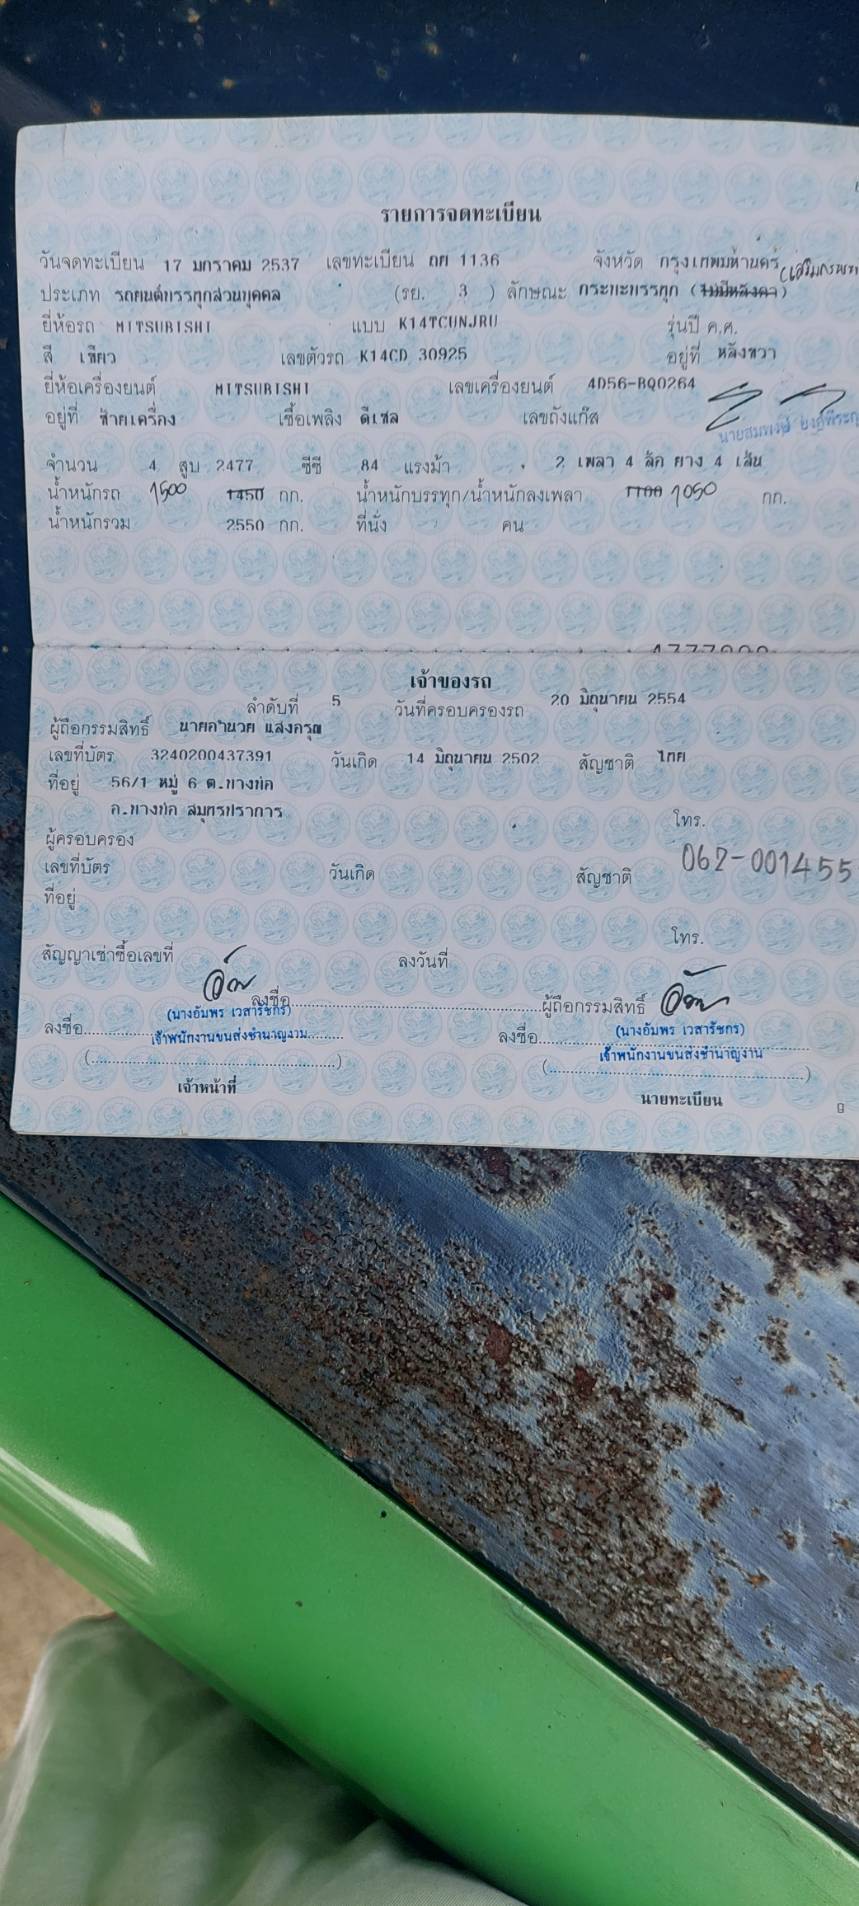 รายการจดทะเบียน
วันจดทะเบียน 17 มกราคม 2537 เลขทะเบียน ถย 1136 จังหวัด กรุงเทพมหานคร
ประเภท รถยนต์บรรทุกส่วนบุคคล (รย. 3 ) ลักษณะ กระบะบรรทุก (ไม่มีหลังคา)
ยี่ห้อรถ MITSUBISHI แบบ K14TCUNJRU รุ่นปี ค.ศ.
สี เขียว เลขตัวรถ K14CD 30925 อยู่ที่ หลังขวา
ยี่ห้อเครื่องยนต์ MITSUBISHI เลขเครื่องยนต์ 4D56-BQ0264
อยู่ที่ ซ้ายเครื่อง เชื้อเพลิง ดีเซล เลขถังแก๊ส
นายสมพงษ์
จำนวน 4 สูบ 2477 ซีซี 84 แรงม้า 2 เพลา 4 ล้อ ยาง 4 เส้น
น้ำหนักรถ 1500 1450 กก. น้ำหนักบรรทุก/น้ำหนักลงเพลา 1100 1050 กก.
น้ำหนักรวม 2550 กก. ที่นั่ง คน
เจ้าของรถ
ลำดับที่ 5 วันที่ครอบครองรถ 20 มิถุนายน 2554
ผู้ถือกรรมสิทธิ์ นายอำนวย แสงอรุณ
เลขที่บัตร 3240200437391 วันเกิด 14 มิถุนายน 2502 สัญชาติ ไทย
ที่อยู่ 56/1 หมู่ 6 ต.บางบ่อ
อ.บางบ่อ สมุทรปราการ โทร.
ผู้ครอบครอง
เลขที่บัตร วันเกิด สัญชาติ 062-001455
ที่อยู่
โทร.
สัญญาเช่าซื้อเลขที่ ลงวันที่
ลงชื่อ ผู้ถือกรรมสิทธิ์
(นางอัมพร เวสารัชกร) (นางอัมพร เวสารัชกร)
ลงชื่อ เจ้าพนักงานขนส่งชำนาญงาน ลงชื่อ เจ้าพนักงานขนส่งชำนาญงาน
(........................) (........................)
เจ้าหน้าที่ นายทะเบียน